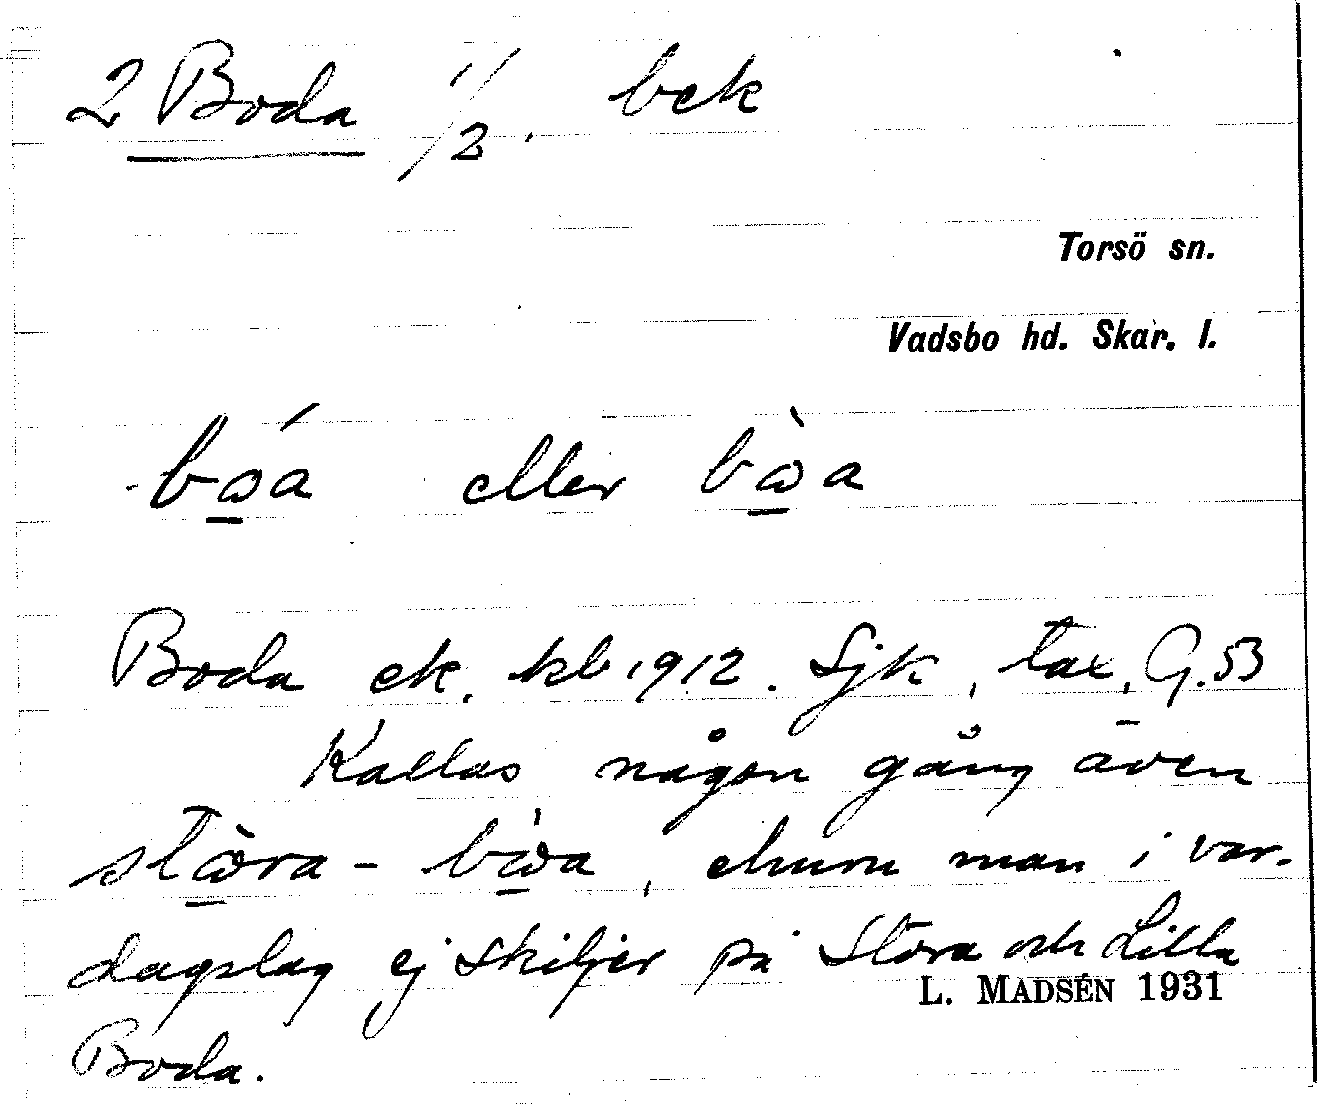 2 Boda 1/2. bek
Torsö sn.
Vadsbo hd. Skar. l.
bωá eller bὼa
Boda ek. kb 1912. Sjk, tax, G. 53
Kallas någon gång även
stὼra - bὼa, ehuru man i var-
dagslag ej skiljer på Stora och Lilla
L. MADSÉN 1931
Boda.